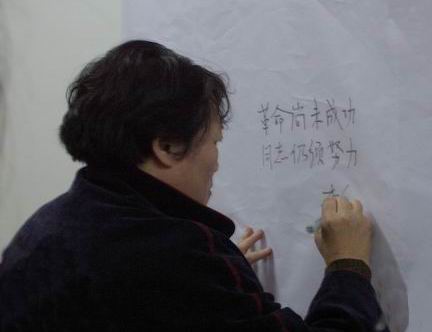 革命尚未成功
同志仍须努力